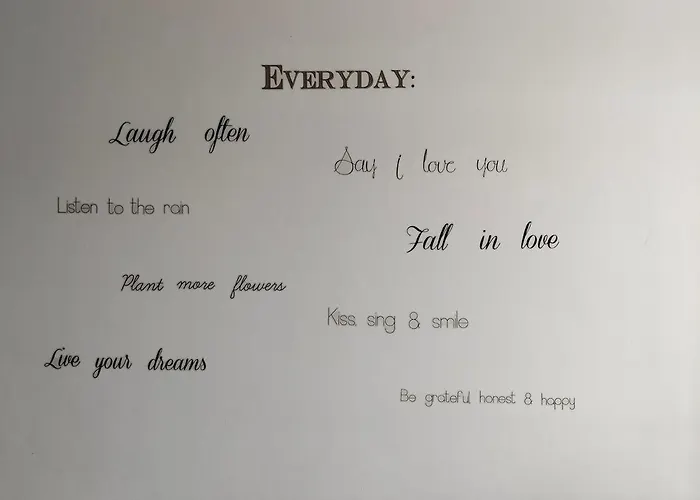 EVERYDAY:
Laugh often
Say i love you
Listen to the rain
Fall in love
Plant more flowers
Kiss, sing & smile
Live your dreams
Be grateful, honest & happy